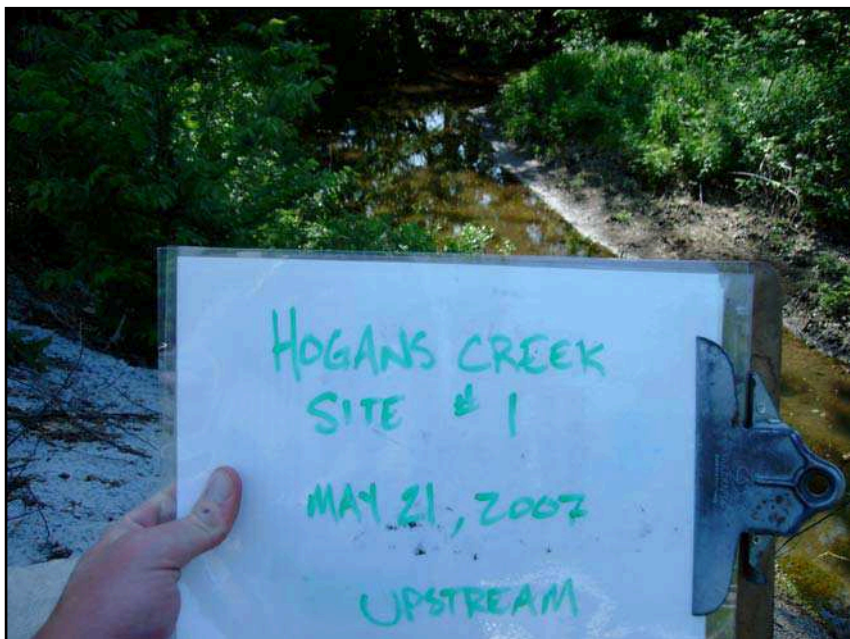 HOGANS CREEK
SITE # 1
MAY 21, 2007
UPSTREAM